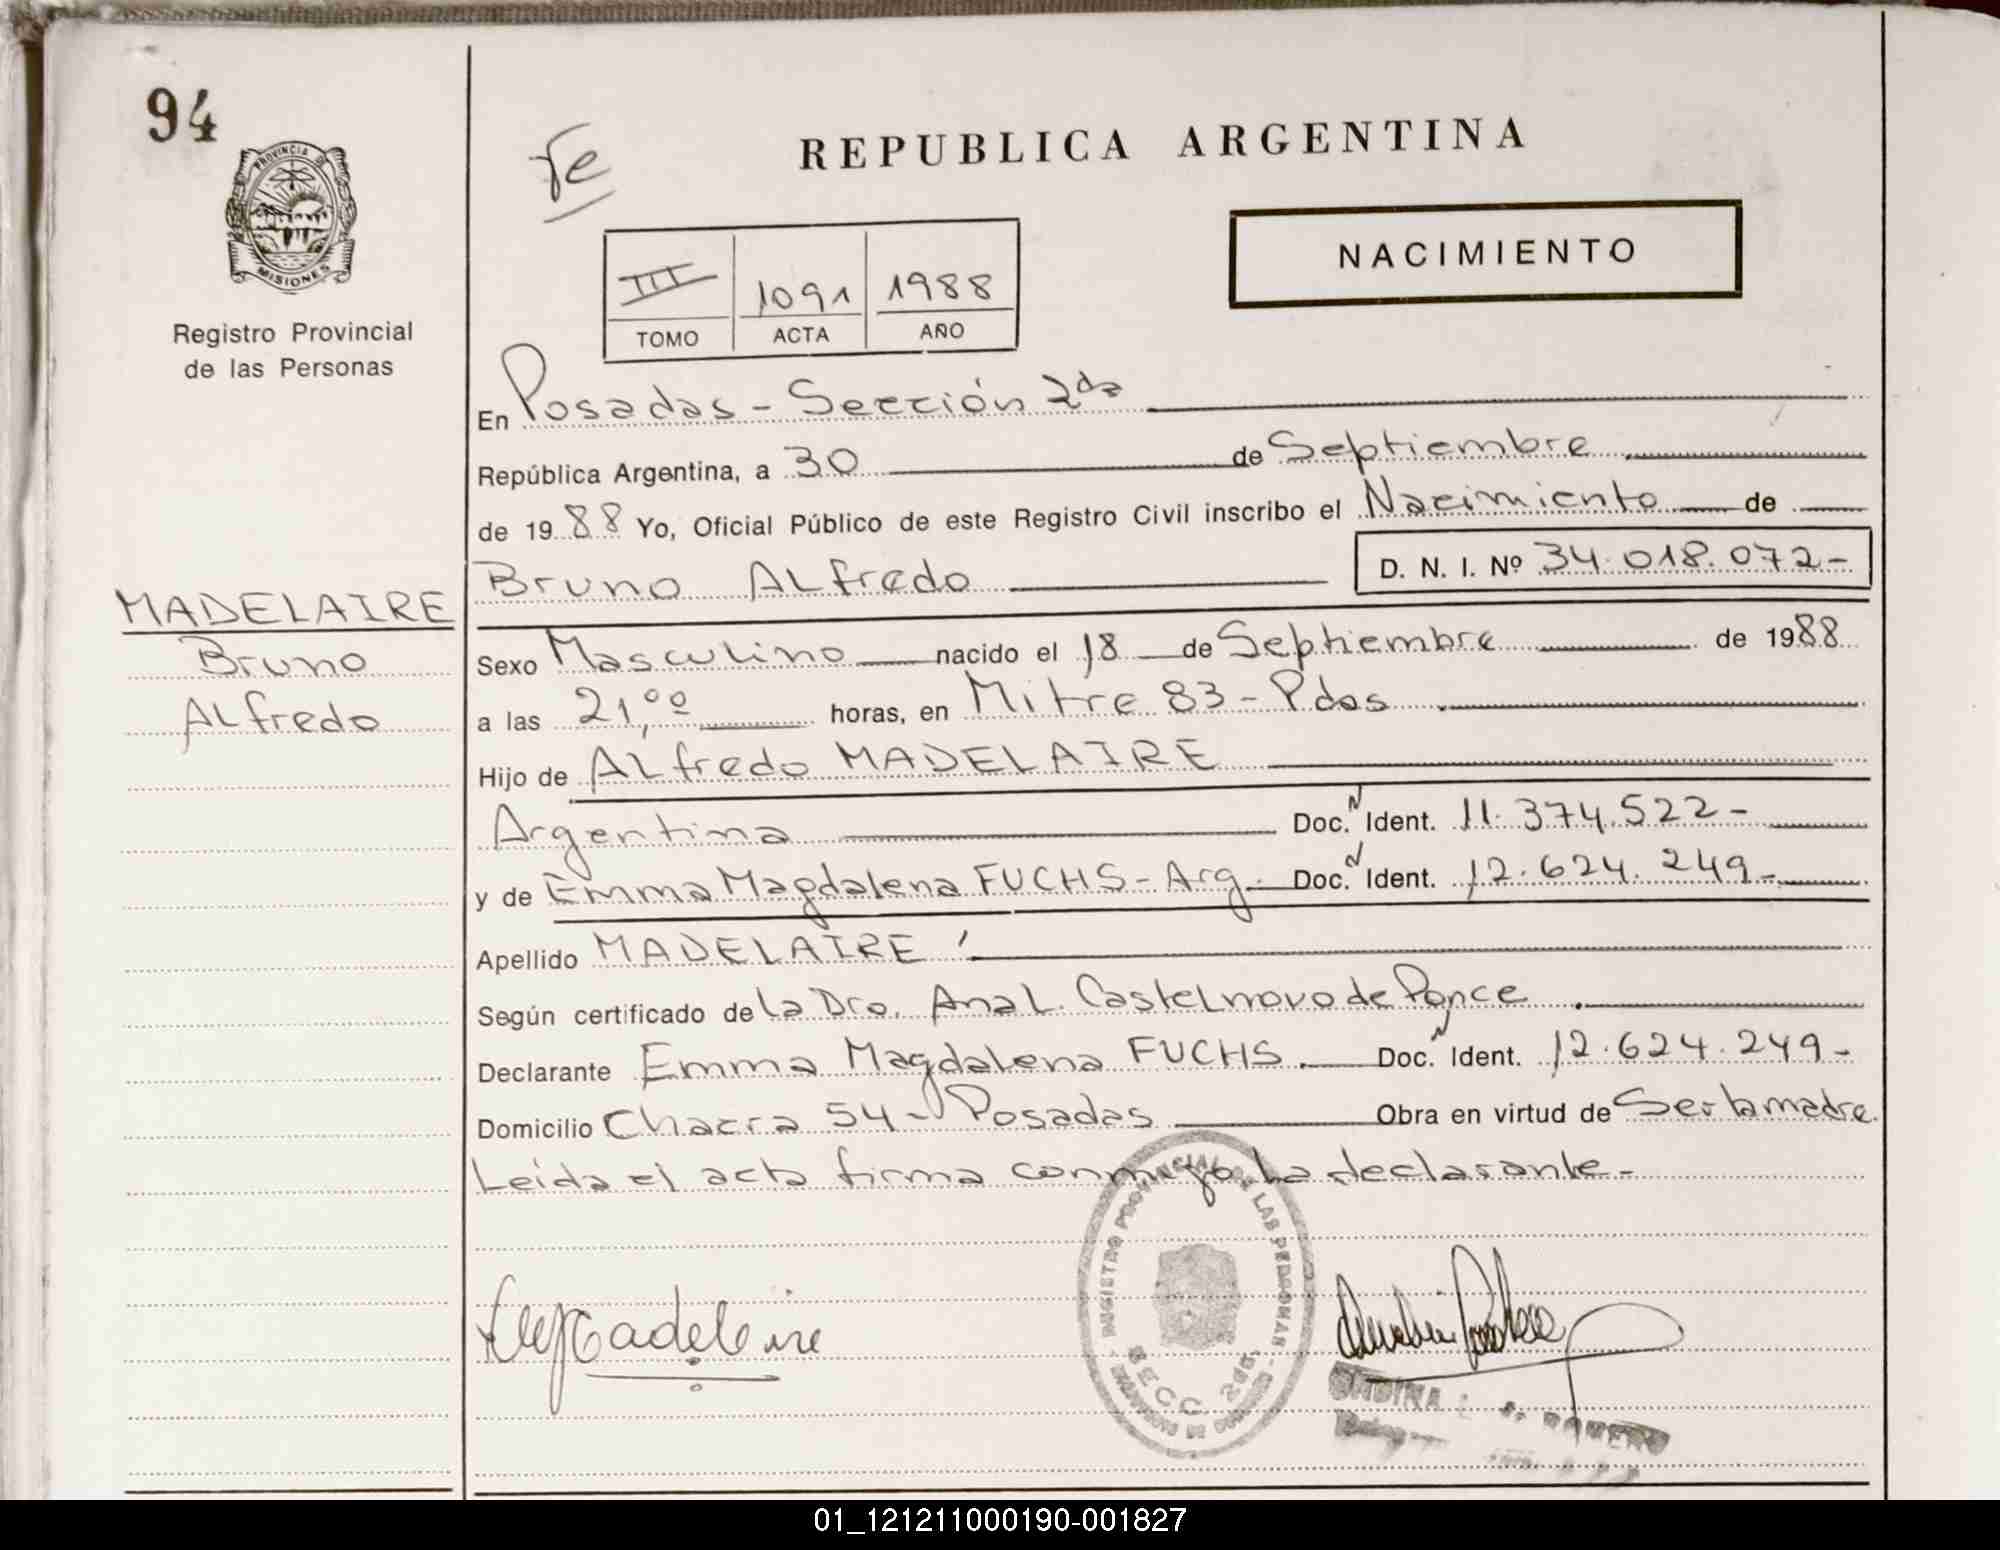 94
PROVINCIA DE
MISIONES
Registro Provincial
de las Personas
MADELAIRE
Bruno
ALfredo
Te
REPUBLICA ARGENTINA
NACIMIENTO
III 1091 1988
TOMO ACTA AÑO
En Posadas - Sección 2da
República Argentina, a 30 de Septiembre
de 1988 Yo, Oficial Público de este Registro Civil inscribo el Nacimiento de
Bruno ALfredo D. N. I. Nº 34.018.072-
Sexo Masculino nacido el 18 de Septiembre de 1988
a las 21,00 horas, en Mitre 83 - Pdas
Hijo de ALfredo MADELAIRE
Argentina Doc. N Ident. 11.374.522-
y de Emma Magdalena FUCHS - Arg. Doc. N Ident. 12.624.249-
Apellido MADELAIRE
Según certificado de La Dra. Ana L. Castelnovo de Ponce
Declarante Emma Magdalena FUCHS. Doc. N Ident. 12.624.249-
Domicilio Chacra 54 - Posadas Obra en virtud de Ser la madre.
Leída el acta firma conmigo La declarante.-
REGISTRO PROVINCIAL DE LAS PERSONAS
SECC. 2da.
ROMERO
01_121211000190-001827